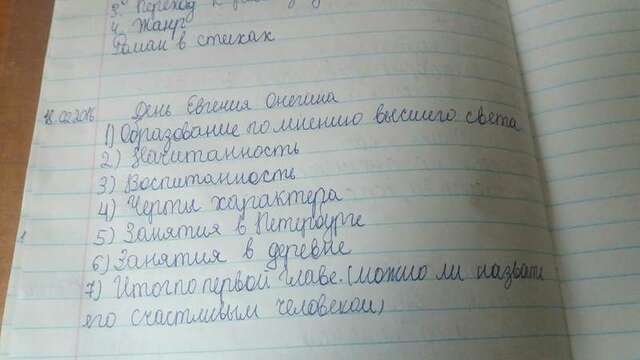 3. Переход к
4. Жанр
Роман в стихах
18.02.2016 День Евгения Онегина
1) Образование по мнению высшего света
2) Начитанность
3) Воспитанность
4) Черты характера
5) Занятия в Петербурге
6) Занятия в деревне
7) Итог по первой главе. (можно ли назвать
его счастливым человеком)